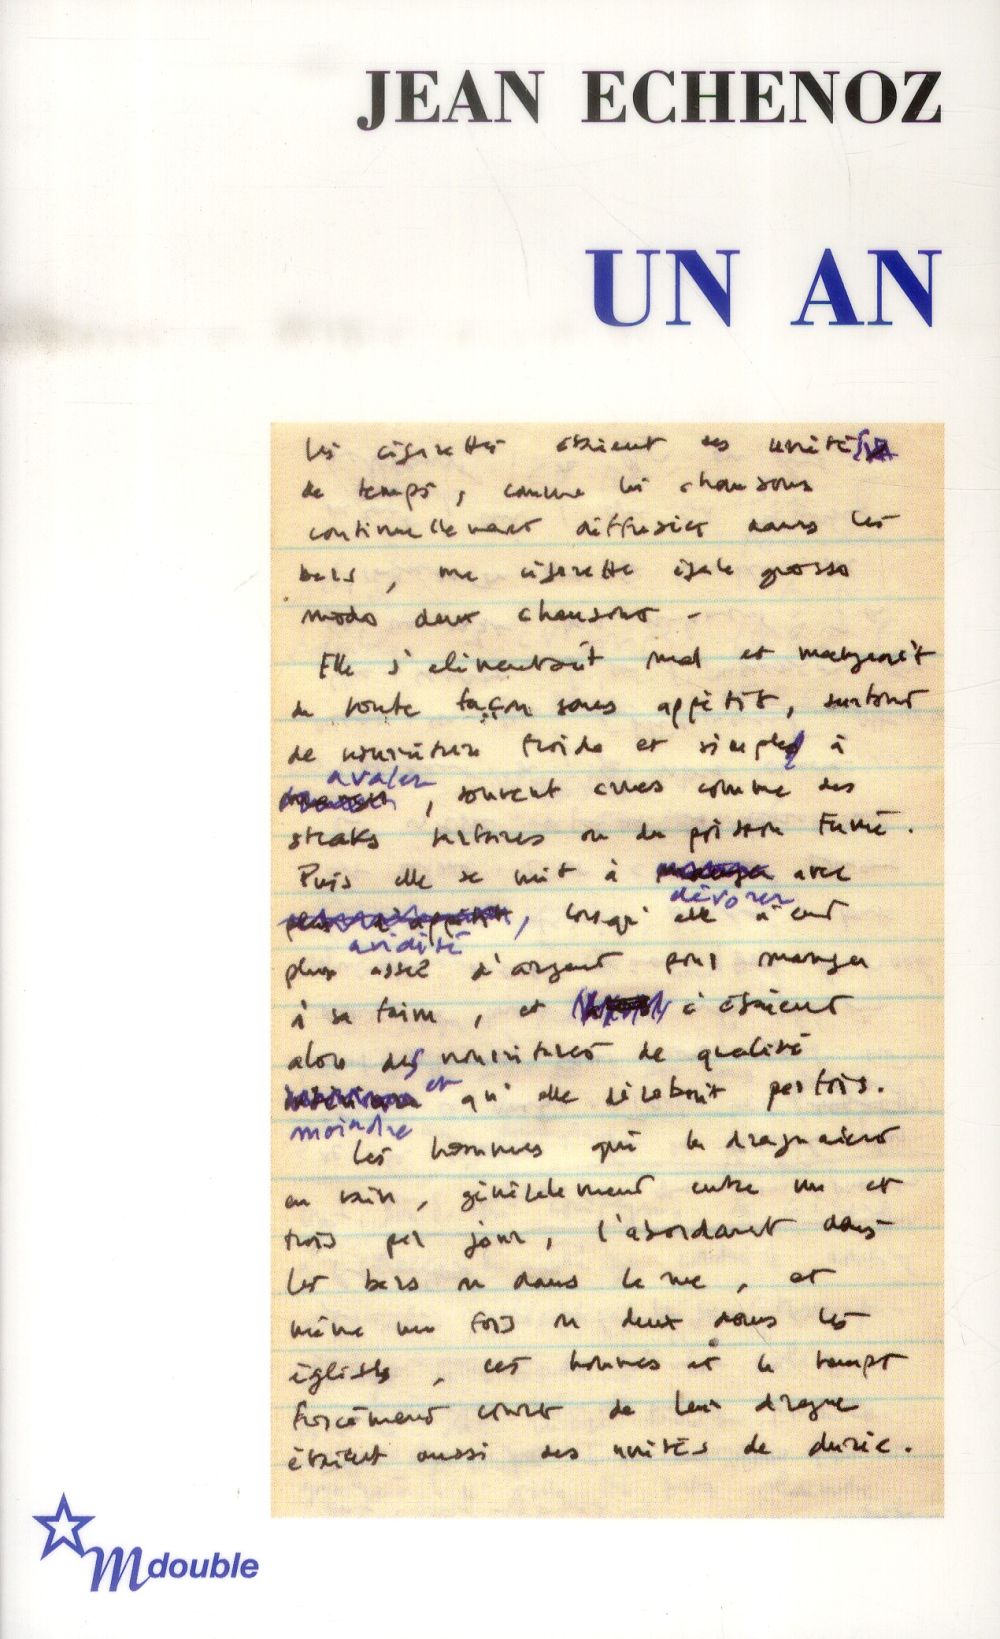 JEAN ECHENOZ
UN AN
les cigarettes étaient des unités
de temps, comme les chansons
continuellement diffusées dans les
bars, une cigarette égale grosso
modo deux chansons -
Elle s'alimentait mal et mangeait
de toute façon sans appétit, surtout
de nourriture froide et simple à
avaler
, souvent crues comme des
steaks tartares ou du poisson fumé.
Puis elle se mit à avec
dévorer
, lorsqu'elle n'eut
avidité
plus assez d'argent pour manger
à sa faim, et c'étaient
alors des nourritures de qualité
et qu'elle dérobait parfois.
moindre
Les hommes qui la draguaient
en vain, généralement entre un et
trois par jour, l'abordant dans
les bars ou dans la rue, et
même une fois ou deux dans les
églises, ces hommes et le temps
forcément court de leur drague
étaient aussi des unités de durée.
M double